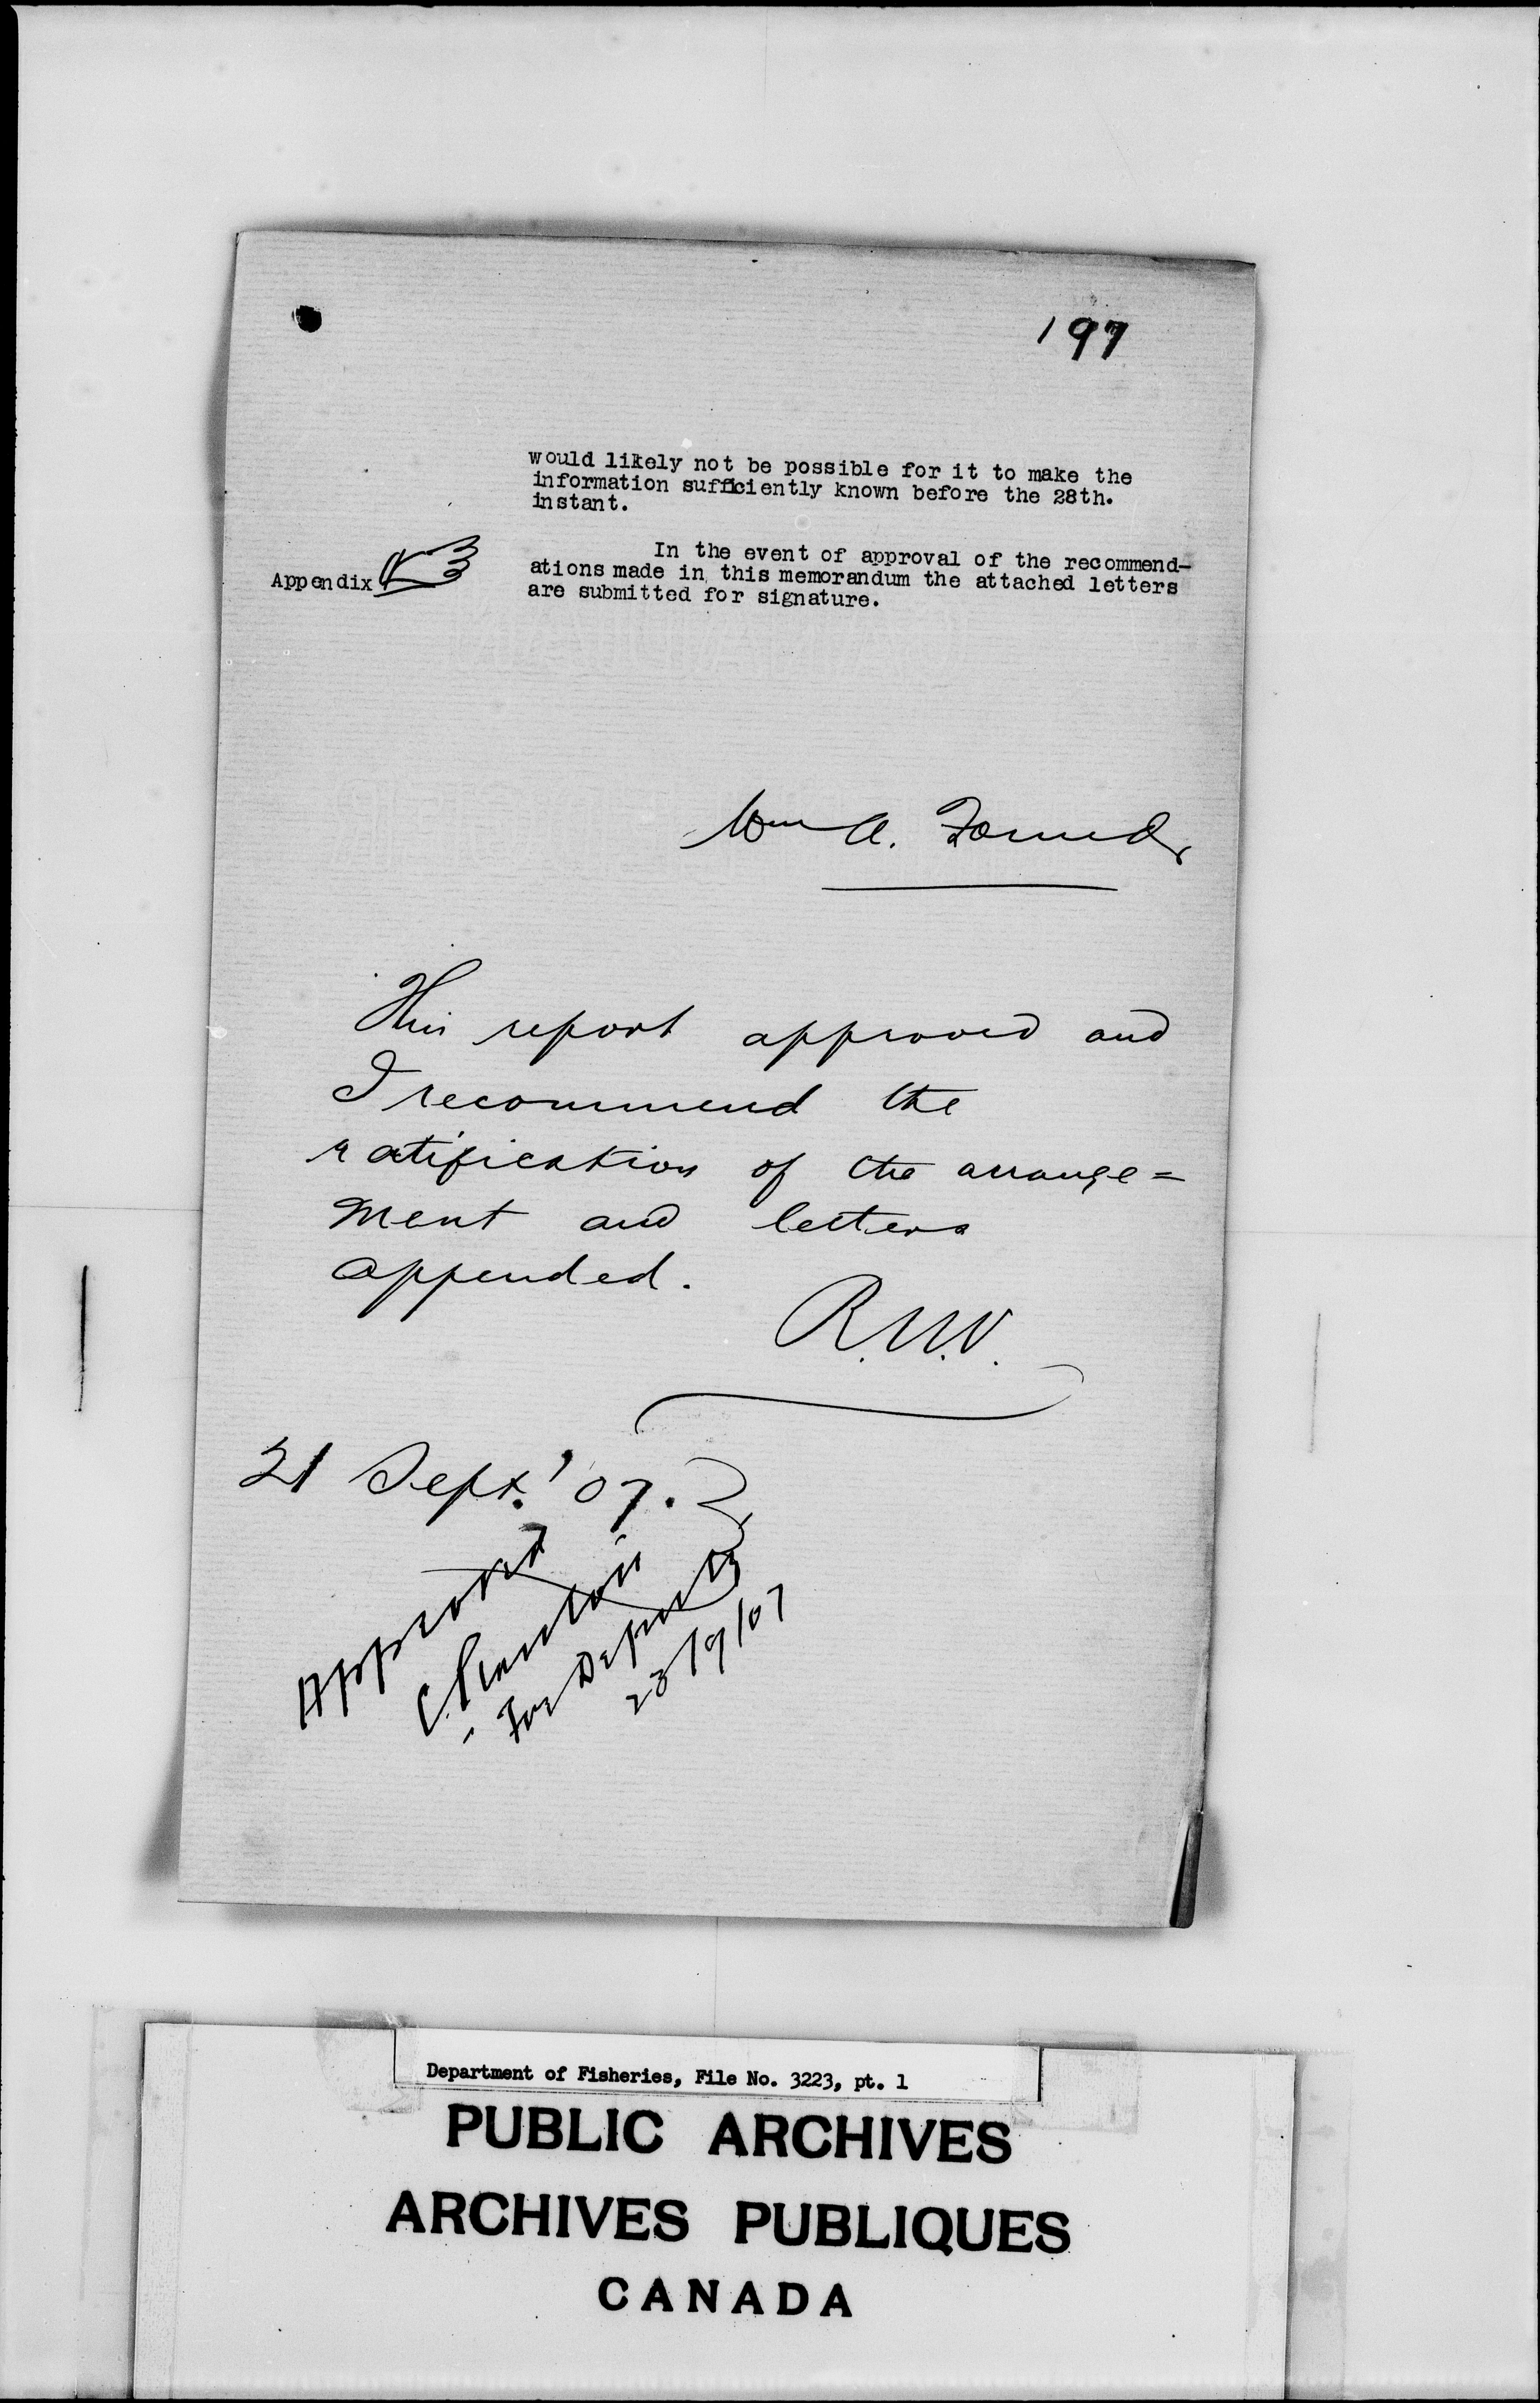 197
would likely not be possible for it to make the
information sufficiently known before the 28th.
instant.
In the event of approval of the recommend-
Appendix
ations made in this memorandum the attached letters
are submitted for signature.
Wm A. Found
This report approved and
I recommend the
ratification of the arrange=
ment and letters
appended.
R.N.V.
21 Sept. '07.
Approved
C. Stanton
- For Deputy
23/9/07
Department of Fisheries, File No. 3223, pt. 1
PUBLIC ARCHIVES
ARCHIVES PUBLIQUES
CANADA